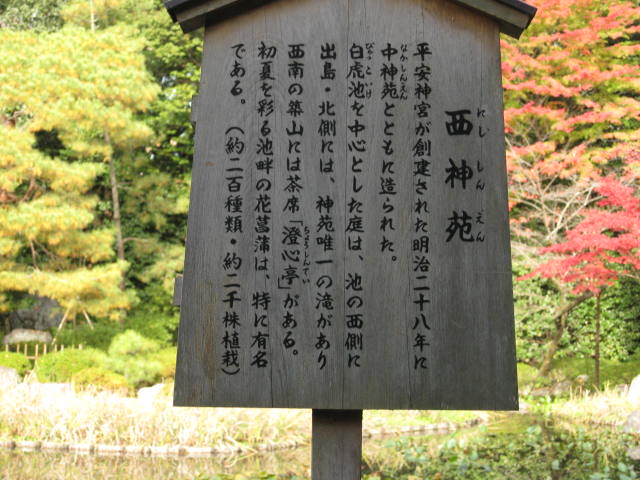 西神苑
にし しん えん
平安神宮が創建された明治二十八年に
中神苑とともに造られた。
なかしんえん
白虎池を中心とした庭は、池の西側に
びゃっこいけ
出島・北側には、神苑唯一の滝があり
西南の築山には茶席「澄心亭」がある。
ちょうしんてい
初夏を彩る池畔の花菖蒲は、特に有名
である。（約二百種類・約二千株植栽）